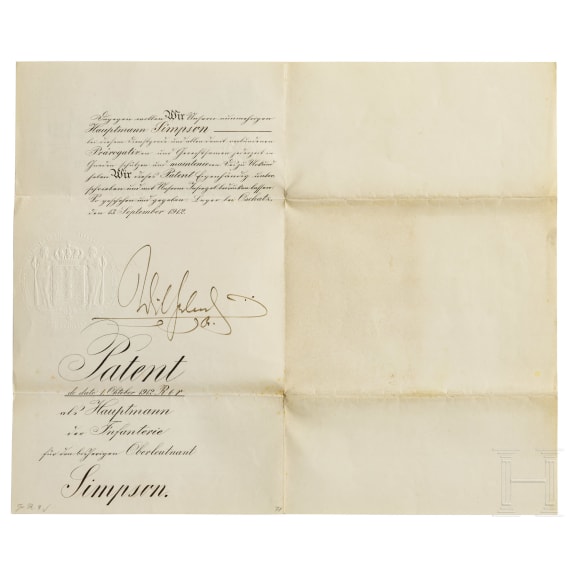 Dagegen wollen Wir Unsern nunmehrigen
Hauptmann Simpson
bei diesem Dienstgrade und allen damit verbundenen
Prärogativen und Gerechtsamen jederzeit in
Gnaden schützen und mainteniren. Deß zu Urkund
haben Wir dieses Patent Eigenhändig unter-
schrieben und mit Unserm Insiegel bedrucken lassen.
So geschehen und gegeben Lager bei Oschatz,
den 13 September 1912.
Wilhelm
Patent
de dato 1. Oktober 1912
als Hauptmann
der Infanterie
für den bisherigen Oberleutnant
Simpson.
H